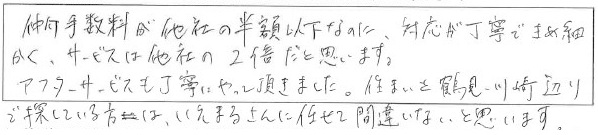 仲介手数料が他社の半額以下なのに、対応が丁寧できめ細
かく、サービスは他社の2倍だと思います。
アフターサービスも丁寧にやって頂きました。住まいを鶴見・川崎辺り
で探している方は、いえまるさんに任せて間違いないと思います。